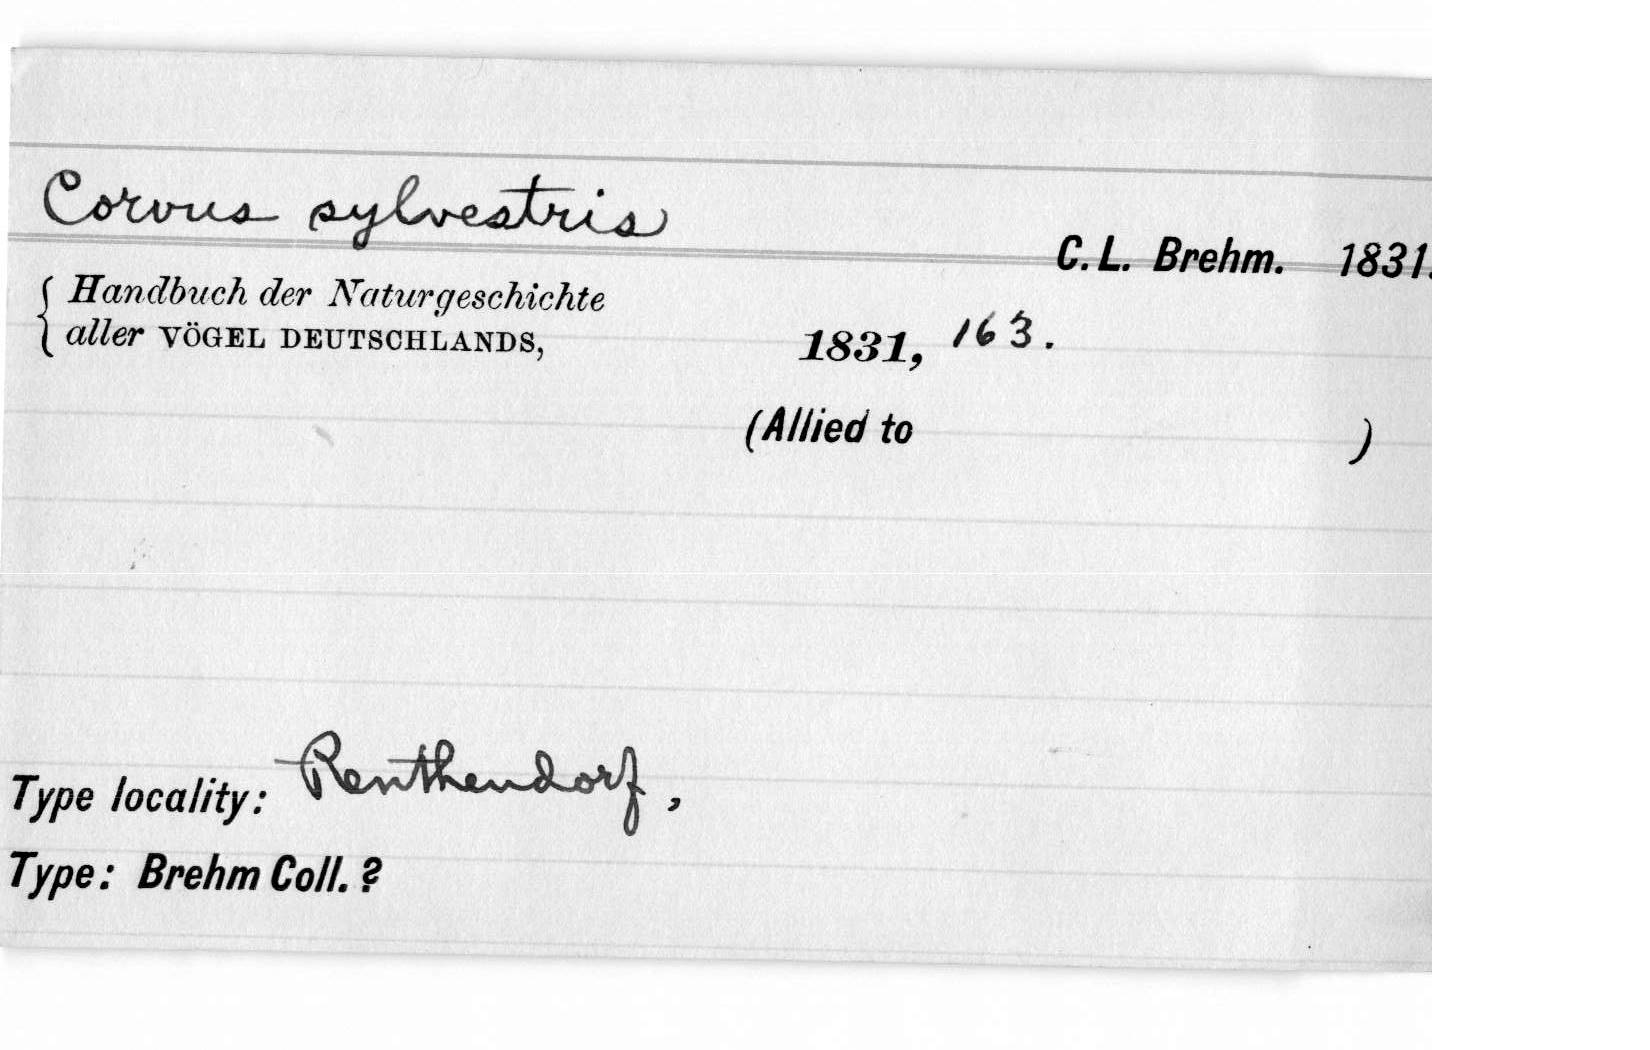 Corvus sylvestris
C. L. Brehm. 1831.
Handbuch der Naturgeschichte
aller VÖGEL DEUTSCHLANDS,
1831, 163.
(Allied to )
Type locality: Renthendorf,
Type: Brehm Coll. ?